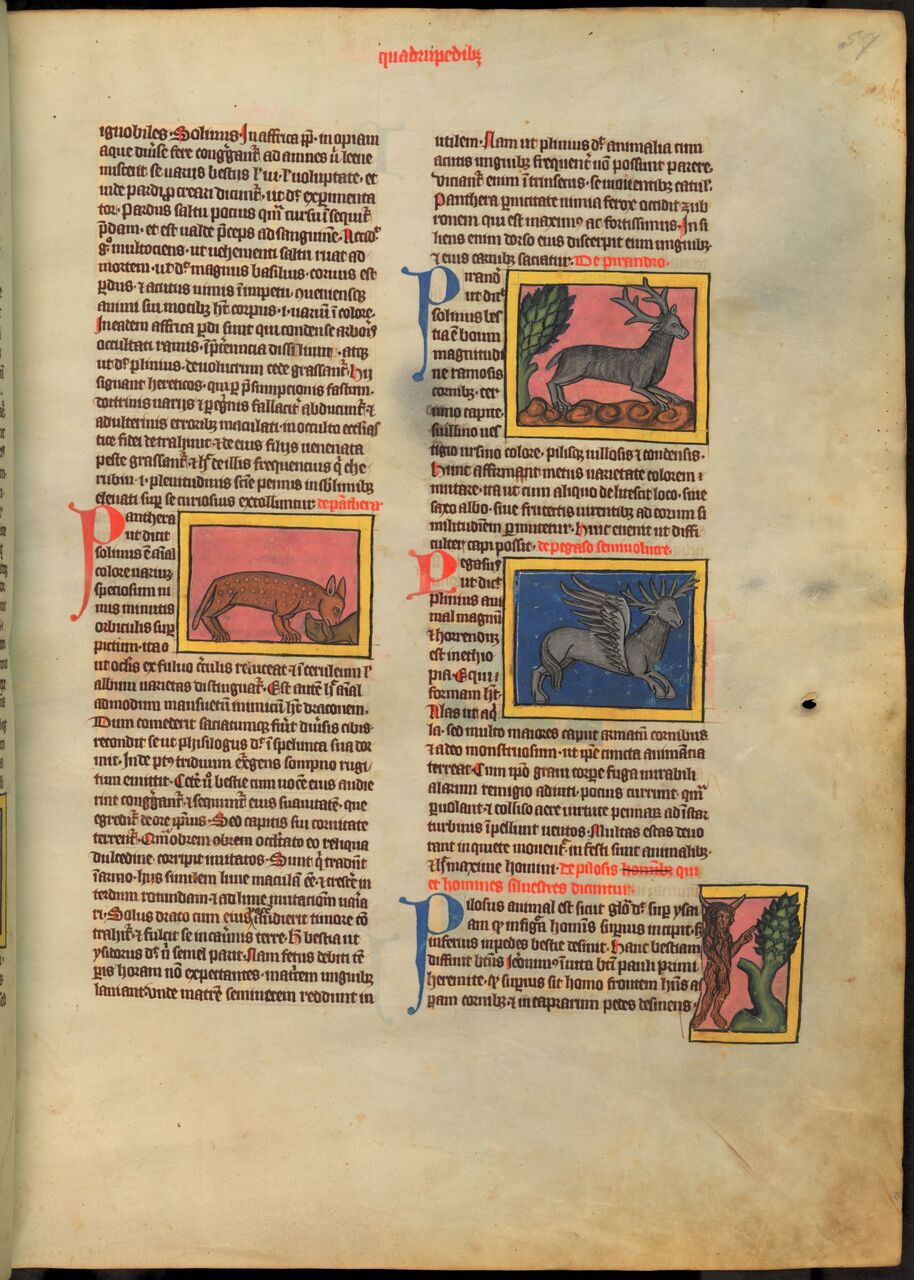 quadrupedibꝫ
57
ignobiles. Solinus. In affrica ꝓp̄. inopiam
aque diu̾se fere cong̾gant᷑ ad amnes
uarijs bestijs uoluptate. et
inde pardi ꝓcreari dicunt᷑. ut dt᷑ experimenta
tor. Pardus saltu pocius qm̄ cursu īsequit᷑
p̄dam. et est ualde p̄ceps ad sanguinē.
multociens. ut uehementi saltu ruat ad
mortem. ut dt᷑ magnus basilius.
animi sui motibꝫ hꝫ corpus .i. uariū ī colore.
In eadem affrica p̄di sunt qui condense arbor̄
occultati ramis. atqꝫ
ut dt᷑ plinius. de uolucrum cede grassant᷑. Hij
signant hereticos. qui ꝑ p̄sumpcionis fastum.
doctrinis uarijs ⁊ fallacit̾ abducunt᷑ ⁊
adulterinis erroribꝫ maculati. in occulto eccl̄ias
tice fidei detrahunt. ⁊ de eius filijs uenenata
peste grassant᷑. de illis frequencius q̄ che
rubin .i. plenitudinis sc̄ie pennis insb̄limibꝫ
eleuati sup̱ se curiosius extolluntur. de pāthera.
Panthera
ut dicit
solinus ē aīal
colore uariuꝫ
speciosum ni
mis minutis
orbiculis sup̱
pictum. ita
ut oc̄lis ex fuluo c̄culis reluceat ⁊ ī ceruleum ł
album uarietas distinguat᷑. Est autē h̾ aīal
admodum mansuetū inimicū hꝫ draconem.
Dum comederit saciatumqꝫ fūīt diu̾sis cibis.
recondit se ut phisilogus dt᷑ ī spelunca sua dor
mit. Inde pꝰ triduum ex̾gens sompno rugi
tum emittit. Cet̾e ū bestie cum uocē eius audie
rint cong̾gant᷑ ⁊ sequunt᷑ eius suauitatē. que
egredit᷑ de ore ipīus. Sed capitis sui toruitate
terrent᷑. obrem occltato eo reliqua
dulcedine corripit īuitatos. Sunt q̄ tradūt
ī armo huiꝰ similem lune maculam eē. ⁊ cresce̾ in
terdum rotundam ⁊ ad lune mutacionm uaria
ri. Solus draco cum eius uocē audierit timore cō
trahit᷑ ⁊ fulcit se in cau̾nis terre. H̾ bestia ut
ysidorus dt᷑ ñ semel parit. Nam fetus debiti tē
p̱is horam nō expectantes. matrem unguibꝫ
laniant. unde matrē seminecem reddunt in
utilem. Nam ut plinius dt᷑ animalia cum
acutis unguibꝫ frequent᷑ nō possunt parere.
Viciant᷑ enim ītrinsecus. se mouentibꝫ catul̾.
Panthera ꝑnicitate nimia ferox occidit zub
ronem qui est maximꝰ ac fortissimus. Insi
liens enim dorso eius discerpit eum unguibꝫ
⁊ eius carnibꝫ saciatur. De pirandro.
Pirandꝰ
ut dic̄
solinus bes
tia ē bouum
magnitudi
ne ramosis
cornibꝫ. cer
uino capite.
suillino ues
tigio ursino colore. pilisqꝫ uillosis ⁊ condensis.
Hunc affirmant metus uarietate colorem ī
mutare. ita ut cum aliquo delitescit loco. siue
saxo albo. siue frutectis uirentibꝫ ad eorum si
militudinem ꝑmutetur. Hinc euenit ut diffi
culter capi possit. de pegaso semiuolucre.
Pegasus
ut dicit
plinius ani
mal magnū
⁊ horrendꝫ
est in ethio
pia. Equi
formam hꝫ.
Alas ut aq̄
la. sed multo maiores caput armatū cornibus
⁊ adeo monstruosum. ut ip̄e cuncta animācia
terreat. Cum ip̄o graui corpe fuga mirabili
alarum remigio adiuti. pocius currunt. qm̄
ꝑuolant ⁊ colliso aere uirtute pennaꝝ ad īstar
turbinis īpellunt uentos. Multas escas deuo
rant inquiete mouent᷑. infesti sunt animalibꝫ.
⁊ h̾ maxime homini. De pilosis hominibꝫ qui
et homines siluestres dicuntur.
Pilosus animal est sicut glō dt᷑ sup̱ ysai
am q̄ in figura homīs sup̱ius incipit. ꝫ
inferius in pedes bestie desinit. Hanc bestiam
diffinit bt̄us Jeronimꝰ ī uita bt̄i pauli primi
heremite. q̄ sup̱ius sit homo frontem hn̄s a
spam cornibꝫ ⁊ in caprarum pedes desinens.